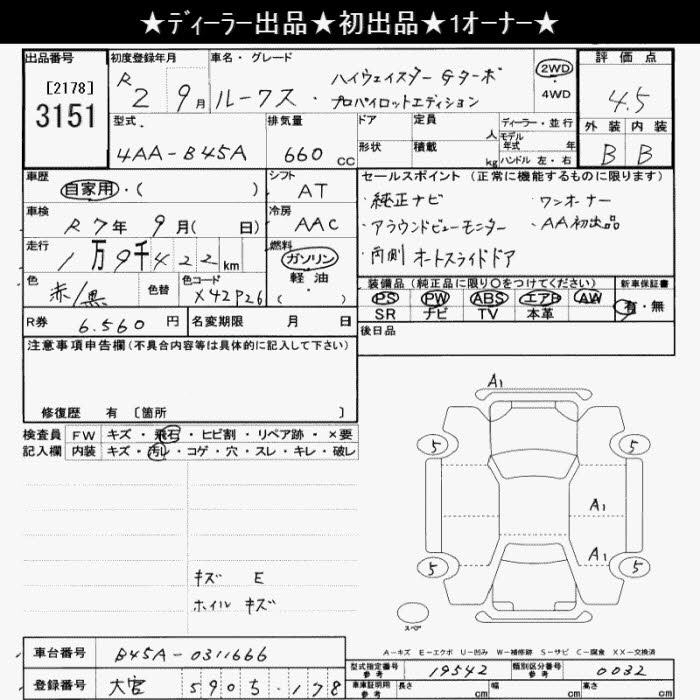 ★ディーラー出品★初出品★1オーナー★
出品番号 初度登録年月 車名・グレード 評価点
[2178] R 2 9月 ルークス・ ハイウェイスターGターボ 2WD 4.5
3151 プロパイロットエディション 4WD
型式 排気量 ドア 定員 人 ディーラー・並行 外装 内装
4AA-B45A 660cc 形状 積載 kg モデル年式 年 B B
ハンドル 左・右
車歴 シフト セールスポイント (正常に機能するものに限ります)
自家用・( ) AT ・純正ナビ ・ワンオーナー
車検 冷房 ・アラウンドビューモニター ・AA初出品
R7年 9月( 日) AAC ・両側オートスライドドア
走行 燃料
1万9千422km ガソリン・軽油
色 色替 色コード ( ) 装備品(純正品に限り○をつけてください) 新車保証書
赤/黒 X42P26 PS PW ABS エアB AW 有・無
SR ナビ TV 本革
R券 6.560円 名変期限 月 日 後日品
注意事項申告欄(不具合内容等は具体的に記入して下さい)
修復歴 有 〔箇所 〕
検査員 FW キズ・飛石・ヒビ割・リペア跡・×要
記入欄 内装 キズ・汚レ・コゲ・穴・スレ・キレ・破レ
A1
5 5
A1
A1
5 5
キズ E
ホイルキズ
スペア
A-キズ E-エクボ U-凹み W-補修跡 S-サビ C-腐食 XX-交換済
車台番号 B45A-0311666 型式指定番号 参考 19542 類別区分番号 参考 0032
登録番号 大宮 590 ち ・178 車庫証明用 参考 長さ cm 幅 cm 高さ cm